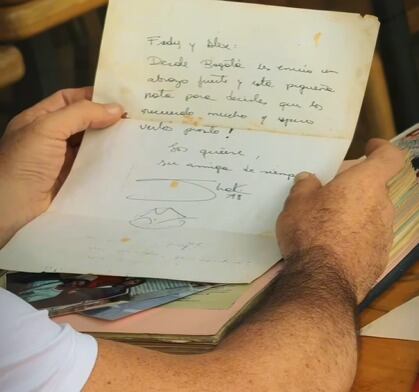 Fedy y Alex:
Desde Bogotá les envío un
abrazo fuerte y esta pequeña
nota para decirles que los
recuerdo mucho y espero
verlos pronto!
Los quiere,
su amiga de siempre